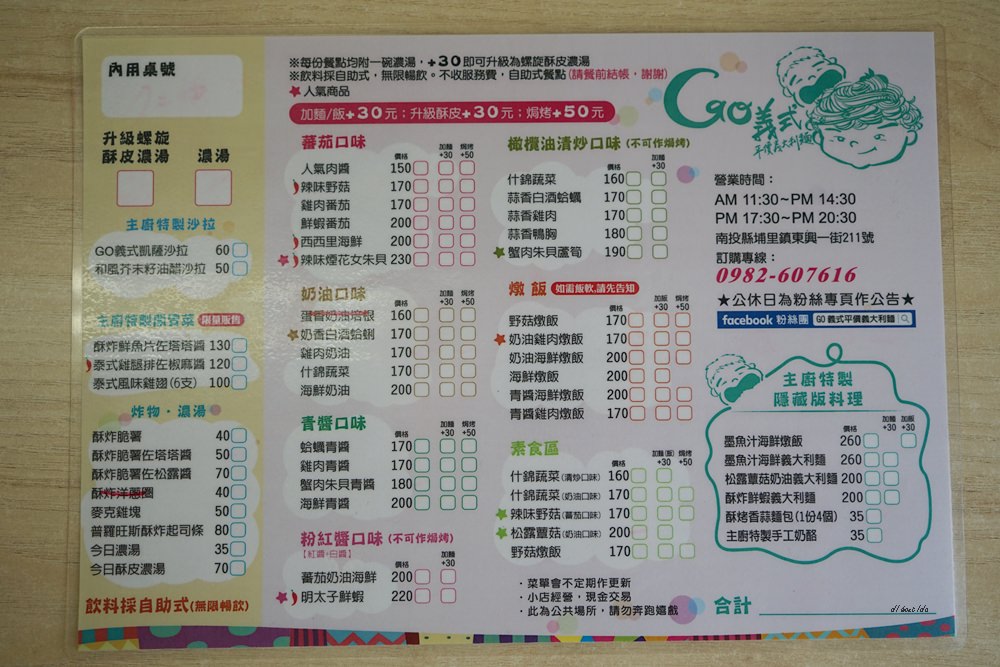 內用桌號
升級螺旋
酥皮濃湯 濃湯
主廚特製沙拉
GO義式凱薩沙拉 60
和風芥末籽油醋沙拉 50
主廚特製開胃菜 限量販售
酥炸鮮魚片佐塔塔醬 130
泰式雞腿排佐椒麻醬 120
泰式風味雞翅(6支) 100
炸物・濃湯
酥炸脆薯 40
酥炸脆薯佐塔塔醬 50
酥炸脆薯佐松露醬 70
酥炸洋蔥圈 40
麥克雞塊 50
普羅旺斯酥炸起司條 80
今日濃湯 35
今日酥皮濃湯 70
飲料採自助式(無限暢飲)
※每份餐點均附一碗濃湯，+30即可升級為螺旋酥皮濃湯
※飲料採自助式，無限暢飲。不收服務費，自助式餐點(請餐前結帳，謝謝)
★人氣商品
加麵/飯+30元；升級酥皮+30元；焗烤+50元
蕃茄口味
價格 加麵+30 焗烤+50
人氣肉醬 150
辣味野菇 170
雞肉蕃茄 170
鮮蝦蕃茄 200
西西里海鮮 200
★辣味煙花女朱貝 230
奶油口味
價格 加麵+30 焗烤+50
蛋香奶油培根 160
★奶香白酒蛤蜊 170
雞肉奶油 170
什錦蔬菜 170
海鮮奶油 200
青醬口味
價格 加麵+30 焗烤+50
蛤蠣青醬 170
雞肉青醬 170
蟹肉朱貝青醬 180
海鮮青醬 200
粉紅醬口味 (不可作焗烤)
【紅醬+白醬】
價格 加麵+30
蕃茄奶油海鮮 200
★明太子鮮蝦 220
橄欖油清炒口味 (不可作焗烤)
價格 加麵+30
什錦蔬菜 160
蒜香白酒蛤蠣 170
蒜香雞肉 170
蒜香鴨胸 180
★蟹肉朱貝蘆筍 190
燉飯 如需飯軟,請先告知
價格 加飯+30 焗烤+50
野菇燉飯 170
★奶油雞肉燉飯 170
奶油海鮮燉飯 200
海鮮燉飯 200
青醬海鮮燉飯 200
青醬雞肉燉飯 170
素食區
價格 加麵(飯)+30 焗烤+50
什錦蔬菜(清炒口味) 160
什錦蔬菜(奶油口味) 170
★辣味野菇(蕃茄口味) 170
★松露蕈菇(奶油口味) 200
野菇燉飯 170
・菜單會不定期作更新
・小店經營，現金交易
・此為公共場所，請勿奔跑嬉戲
Cgo義式
平價義大利麵
營業時間：
AM 11:30~PM 14:30
PM 17:30~PM 20:30
南投縣埔里鎮東興一街211號
訂購專線：
0982-607616
★公休日為粉絲專頁作公告★
facebook 粉絲團 GO 義式平價義大利麵
主廚特製
隱藏版料理
價格 加麵+30 加飯+30
墨魚汁海鮮燉飯 260
墨魚汁海鮮義大利麵 260
松露蕈菇奶油義大利麵 200
酥炸鮮蝦義大利麵 200
酥烤香蒜麵包(1份4個) 35
主廚特製手工奶酪 35
合計